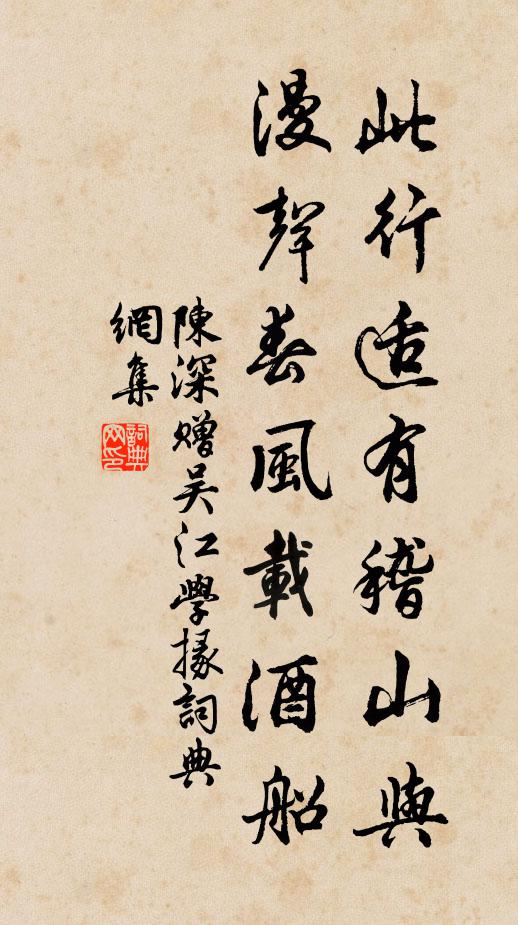 此行适有稽山興
漫聲春風載酒船
陳深贈吴江學掾詞典
網集
詞典
网印